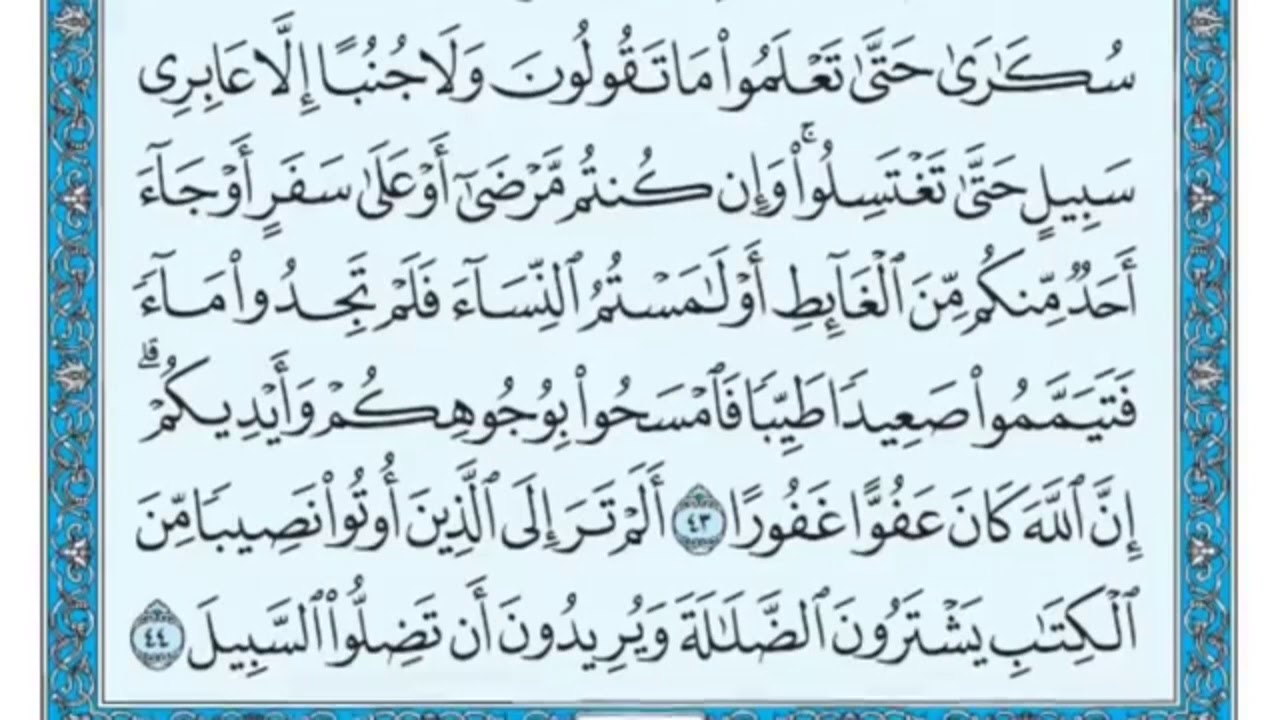 سُكَٰرَىٰ حَتَّىٰ تَعْلَمُوا۟ مَا تَقُولُونَ وَلَا جُنُبًا إِلَّا عَابِرِى
سَبِيلٍ حَتَّىٰ تَغْتَسِلُوا۟ ۚ وَإِن كُنتُم مَّرْضَىٰٓ أَوْ عَلَىٰ سَفَرٍ أَوْ جَآءَ
أَحَدٌ مِّنكُم مِّنَ ٱلْغَآئِطِ أَوْ لَٰمَسْتُمُ ٱلنِّسَآءَ فَلَمْ تَجِدُوا۟ مَآءً
فَتَيَمَّمُوا۟ صَعِيدًا طَيِّبًا فَٱمْسَحُوا۟ بِوُجُوهِكُمْ وَأَيْدِيكُمْ ۗ
إِنَّ ٱللَّهَ كَانَ عَفُوًّا غَفُورًا ٤٣ أَلَمْ تَرَ إِلَى ٱلَّذِينَ أُوتُوا۟ نَصِيبًا مِّنَ
ٱلْكِتَٰبِ يَشْتَرُونَ ٱلضَّلَٰلَةَ وَيُرِيدُونَ أَن تَضِلُّوا۟ ٱلسَّبِيلَ ٤٤